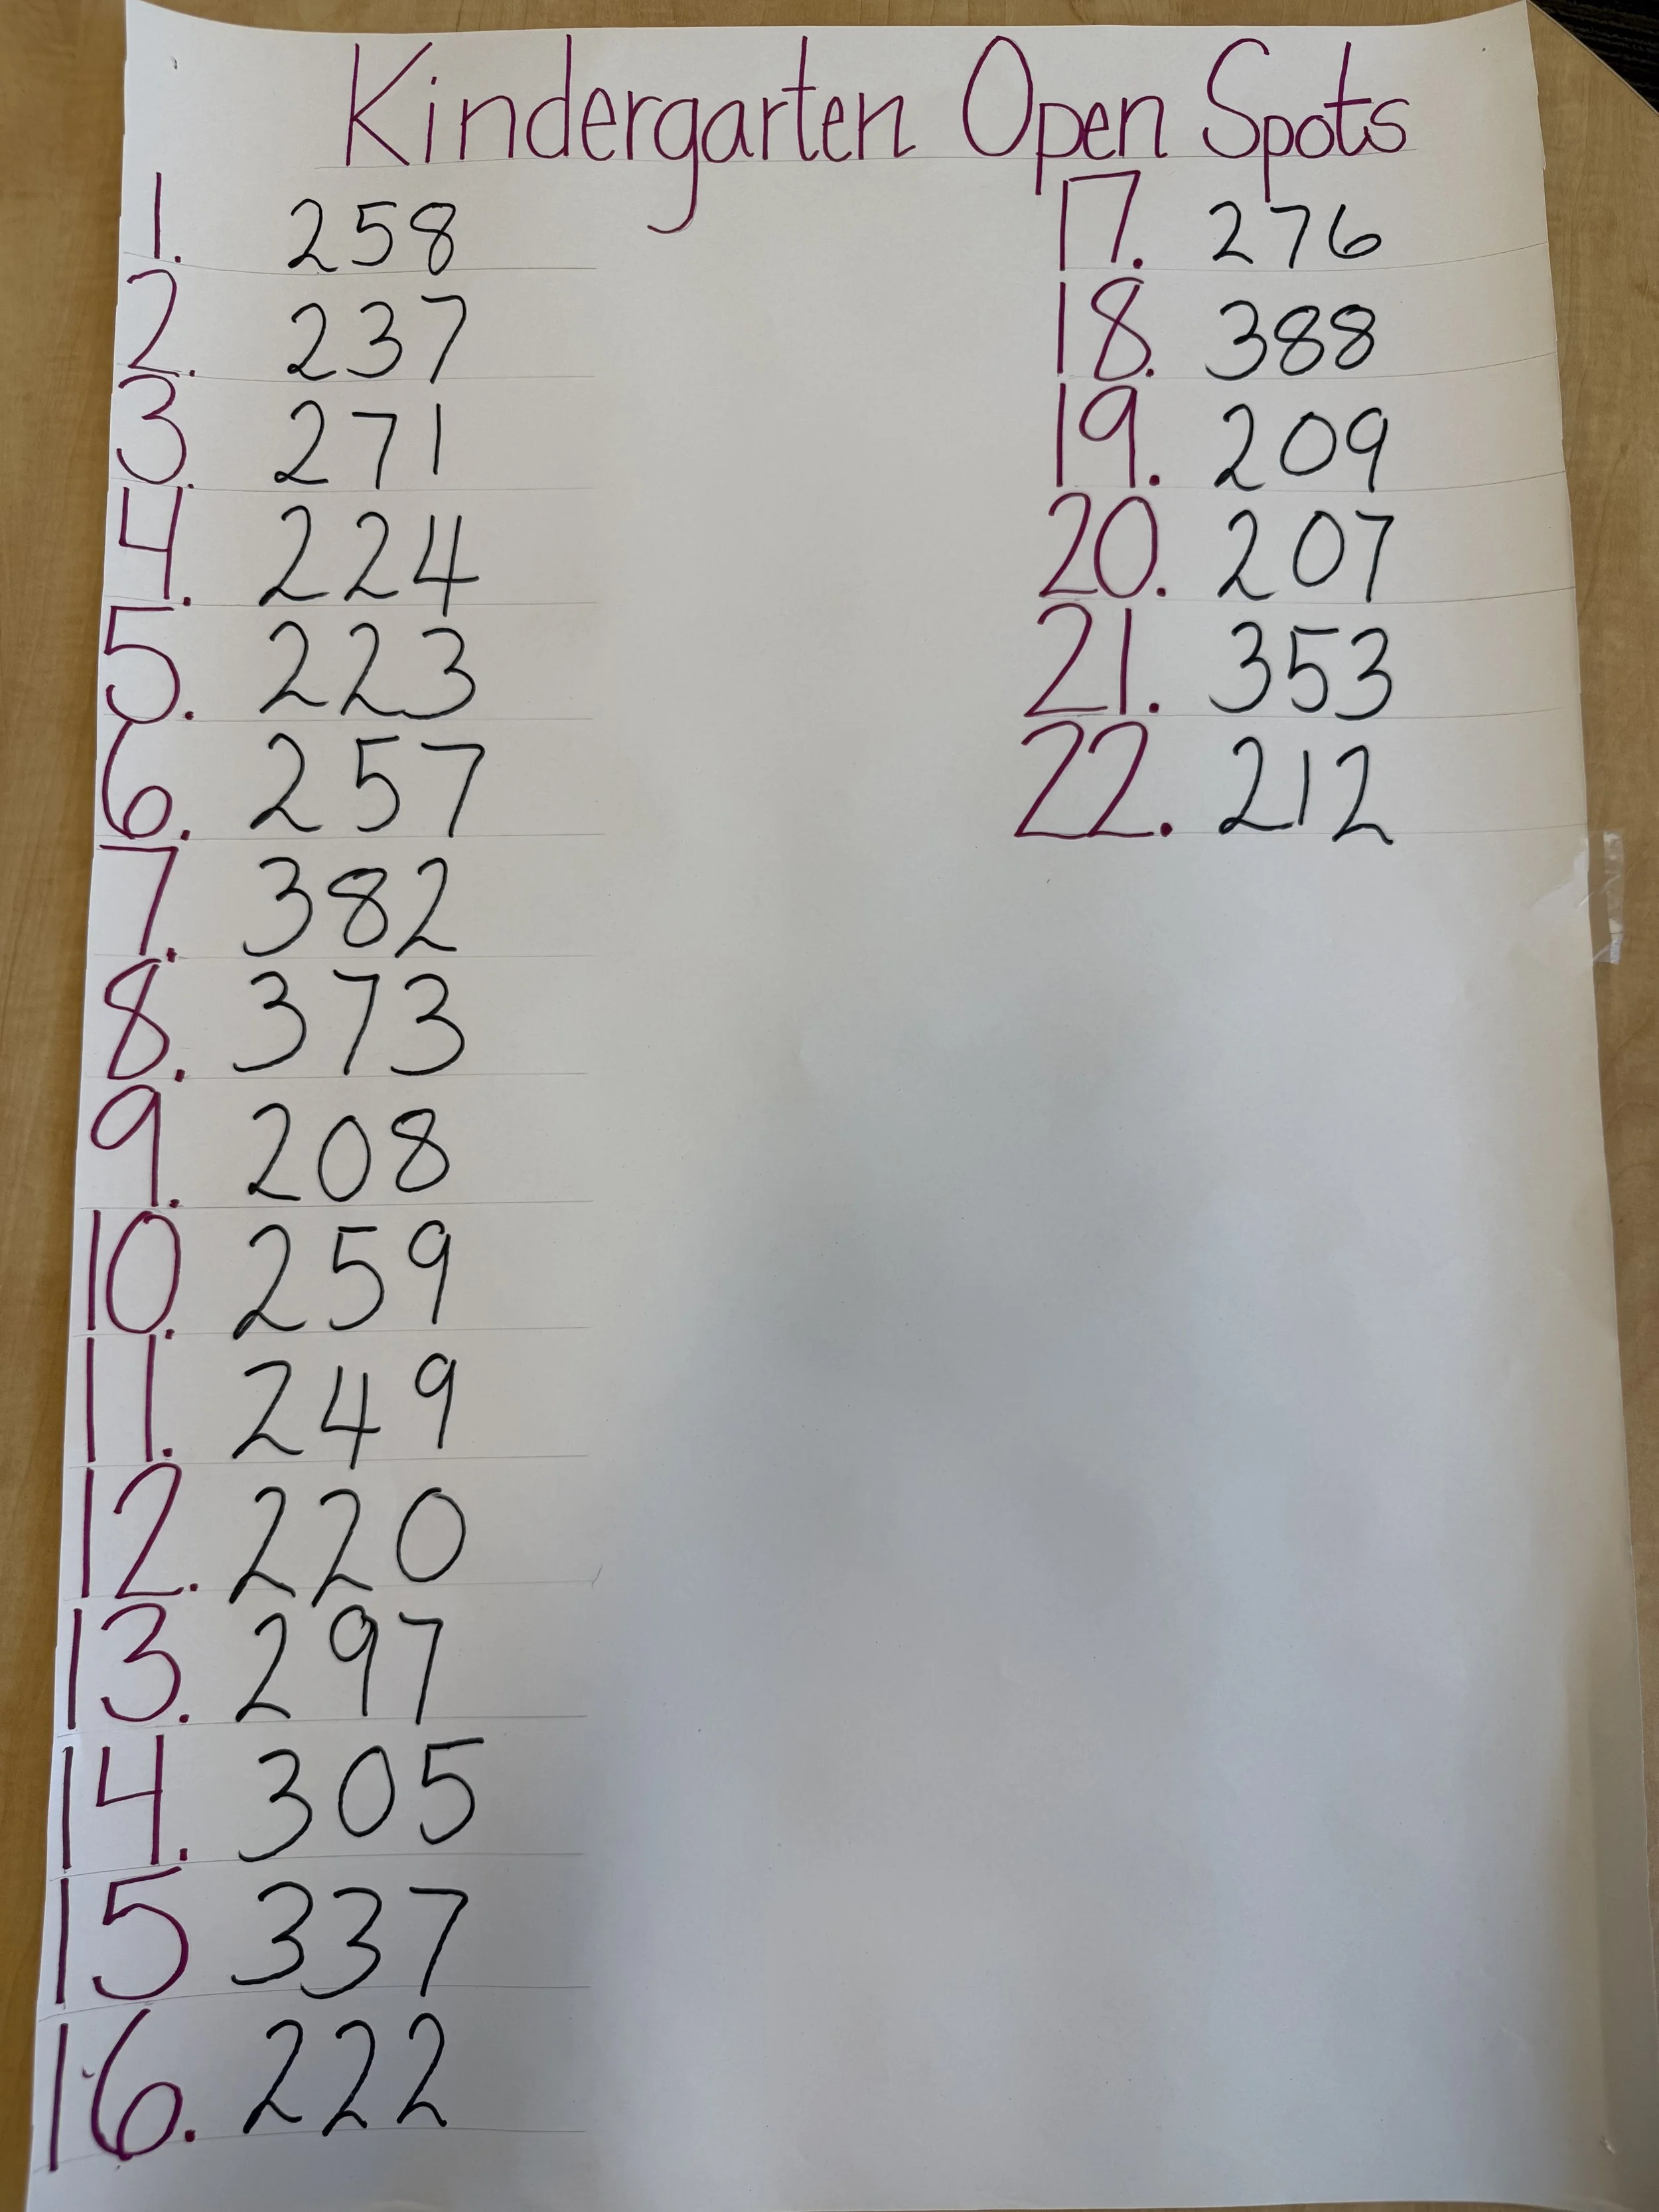 Kindergarten Open Spots
1. 258
2. 237
3. 271
4. 224
5. 223
6. 257
7. 382
8. 373
9. 208
10. 259
11. 249
12. 220
13. 297
14. 305
15 337
16. 222
17. 276
18. 388
19. 209
20. 207
21. 353
22. 212